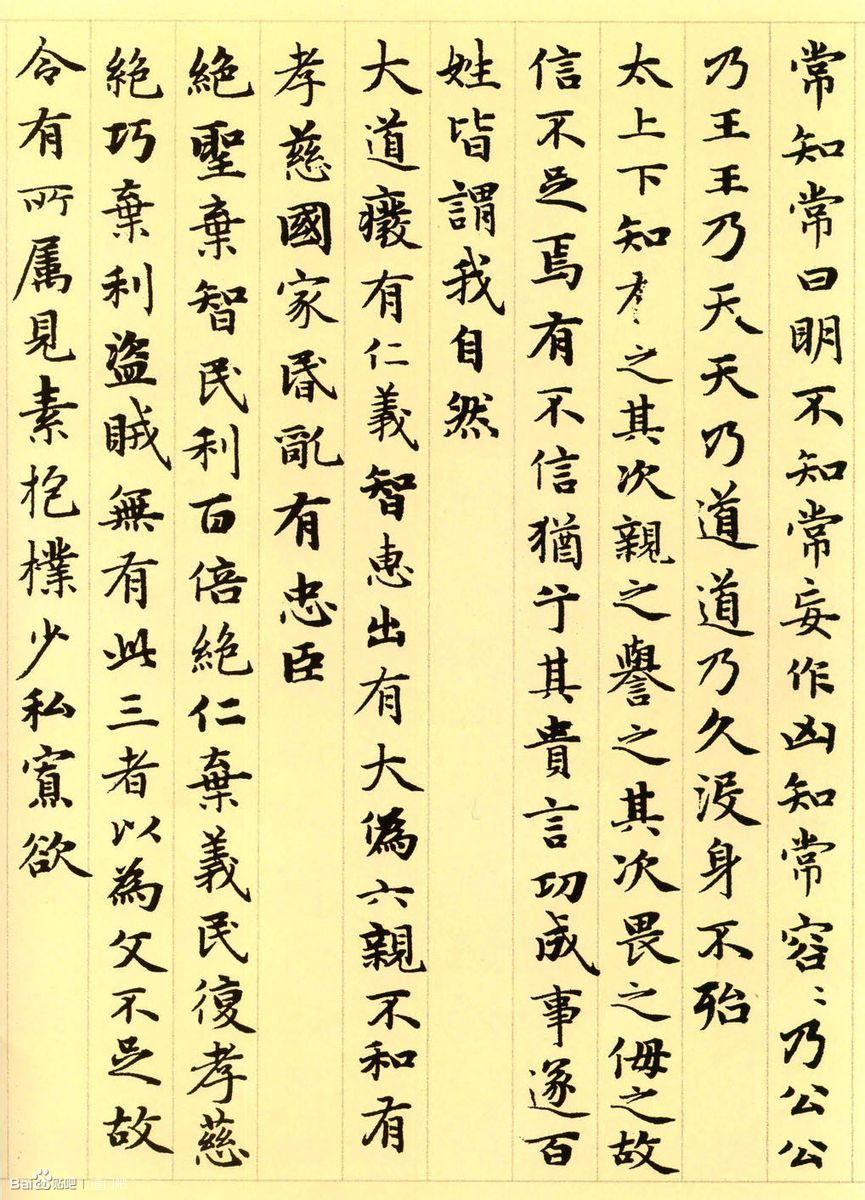 常知常曰明不知常妄作凶知常容〻乃公公
乃王王乃天天乃道道乃久沒身不殆
太上下知之其次親之譽之其次畏之侮之故
信不足焉有不信猶兮其貴言功成事遂百
姓皆謂我自然
大道癈有仁義智惠出有大偽六親不和有
孝慈國家昬亂有忠臣
絕聖棄智民利百倍絕仁棄義民復孝慈
絕巧棄利盜賊無有此三者以為文不足故
令有所属見素抱樸少私寡欲
Bai 贴吧